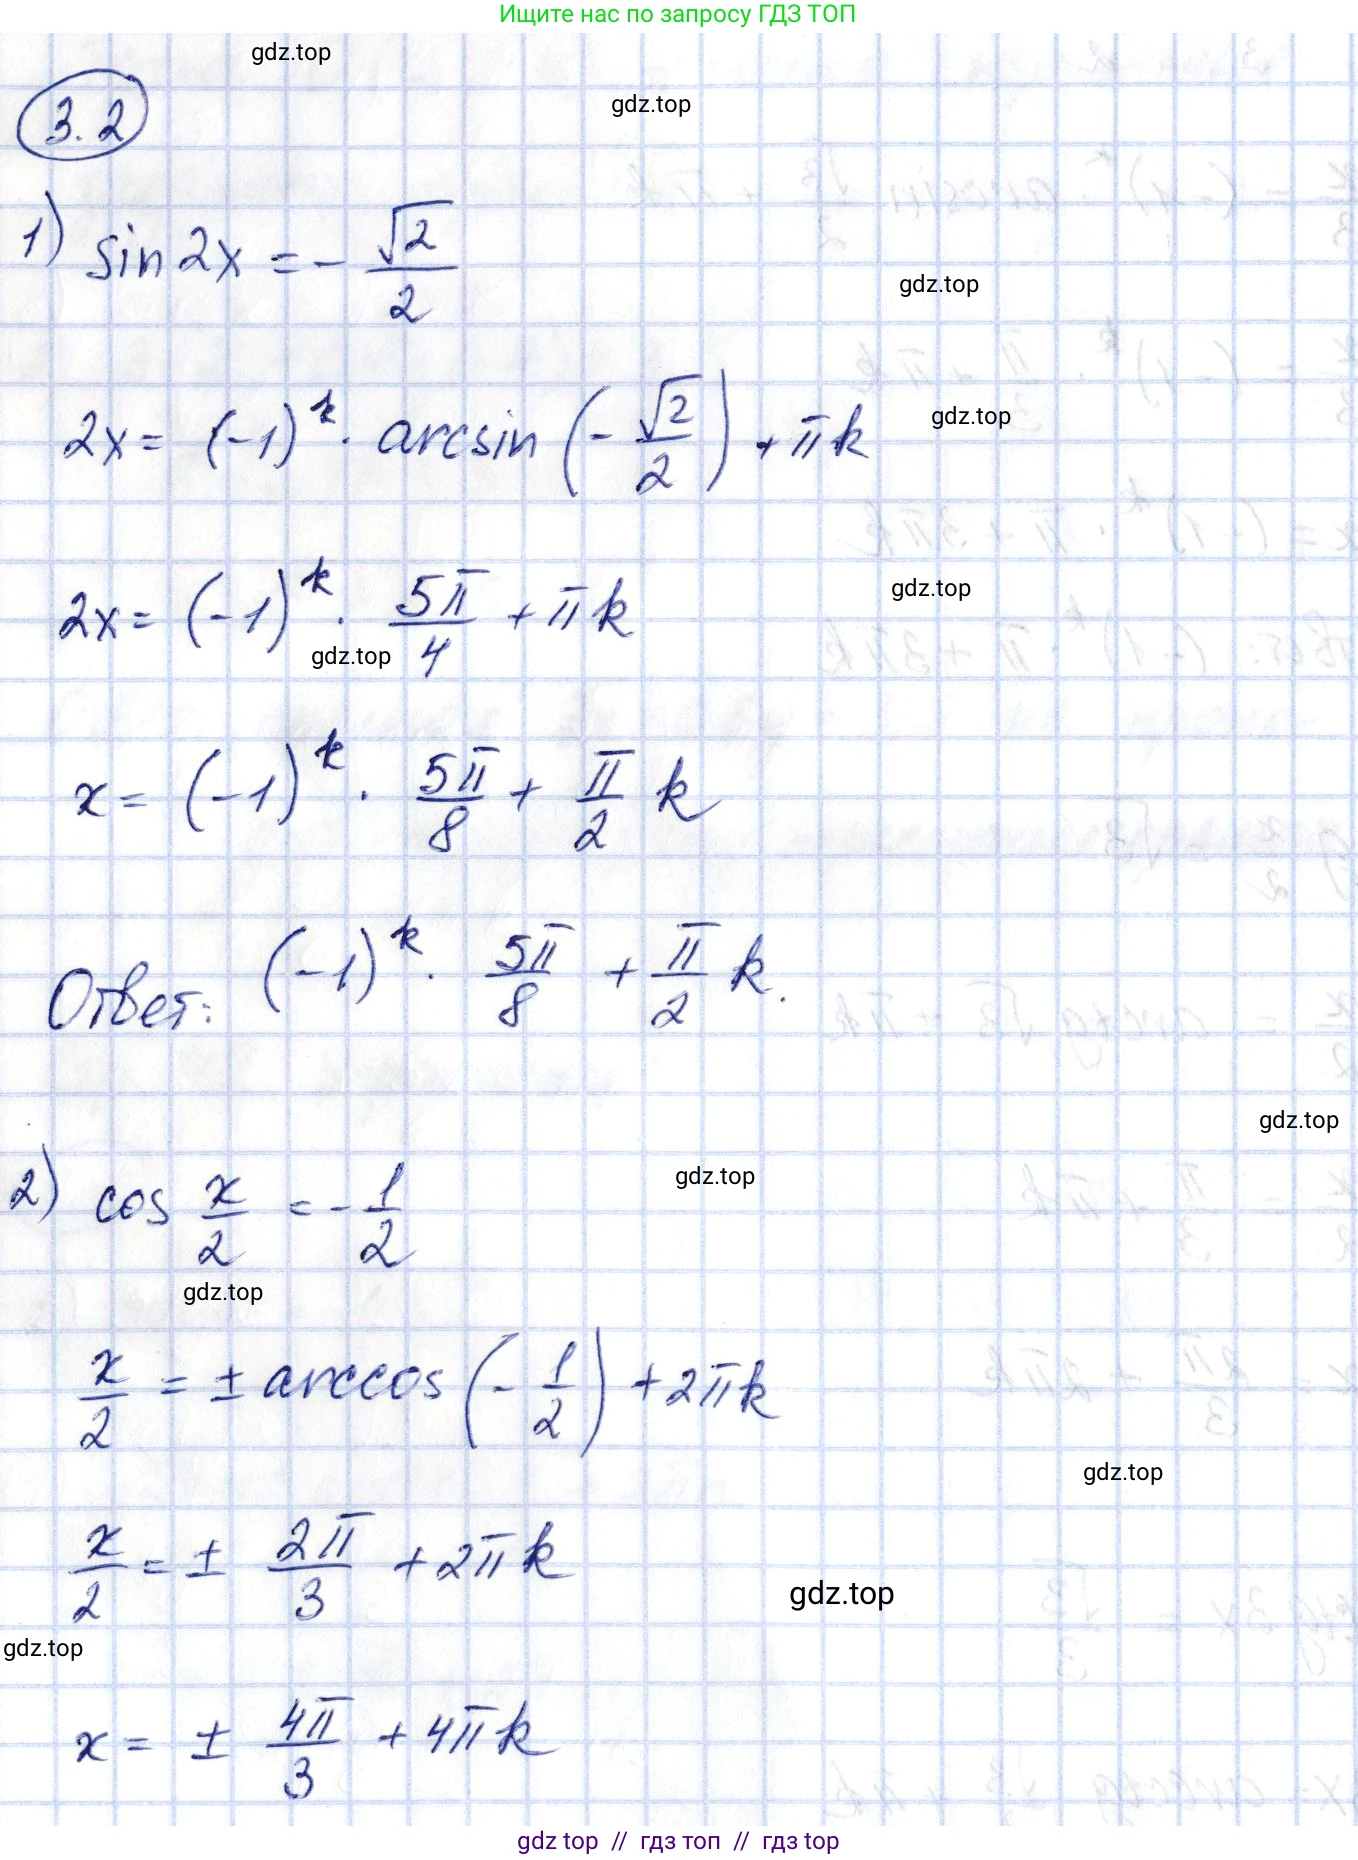 Ищите нас по запросу ГДЗ ТОП
gdz.top
3.2
gdz.top
1) sin 2x = - √2/2
gdz.top
2x = (-1)^k · arcsin (- √2/2) + πk
gdz.top
2x = (-1)^k · 5π/4 + πk
gdz.top
gdz.top
x = (-1)^k · 5π/8 + π/2 k
Ответ: (-1)^k · 5π/8 + π/2 k.
gdz.top
2) cos x/2 = - 1/2
gdz.top
gdz.top
x/2 = ± arccos (- 1/2) + 2πk
gdz.top
x/2 = ± 2π/3 + 2πk
gdz.top
gdz.top
x = ± 4π/3 + 4πk
gdz top // гдз топ // гдз top